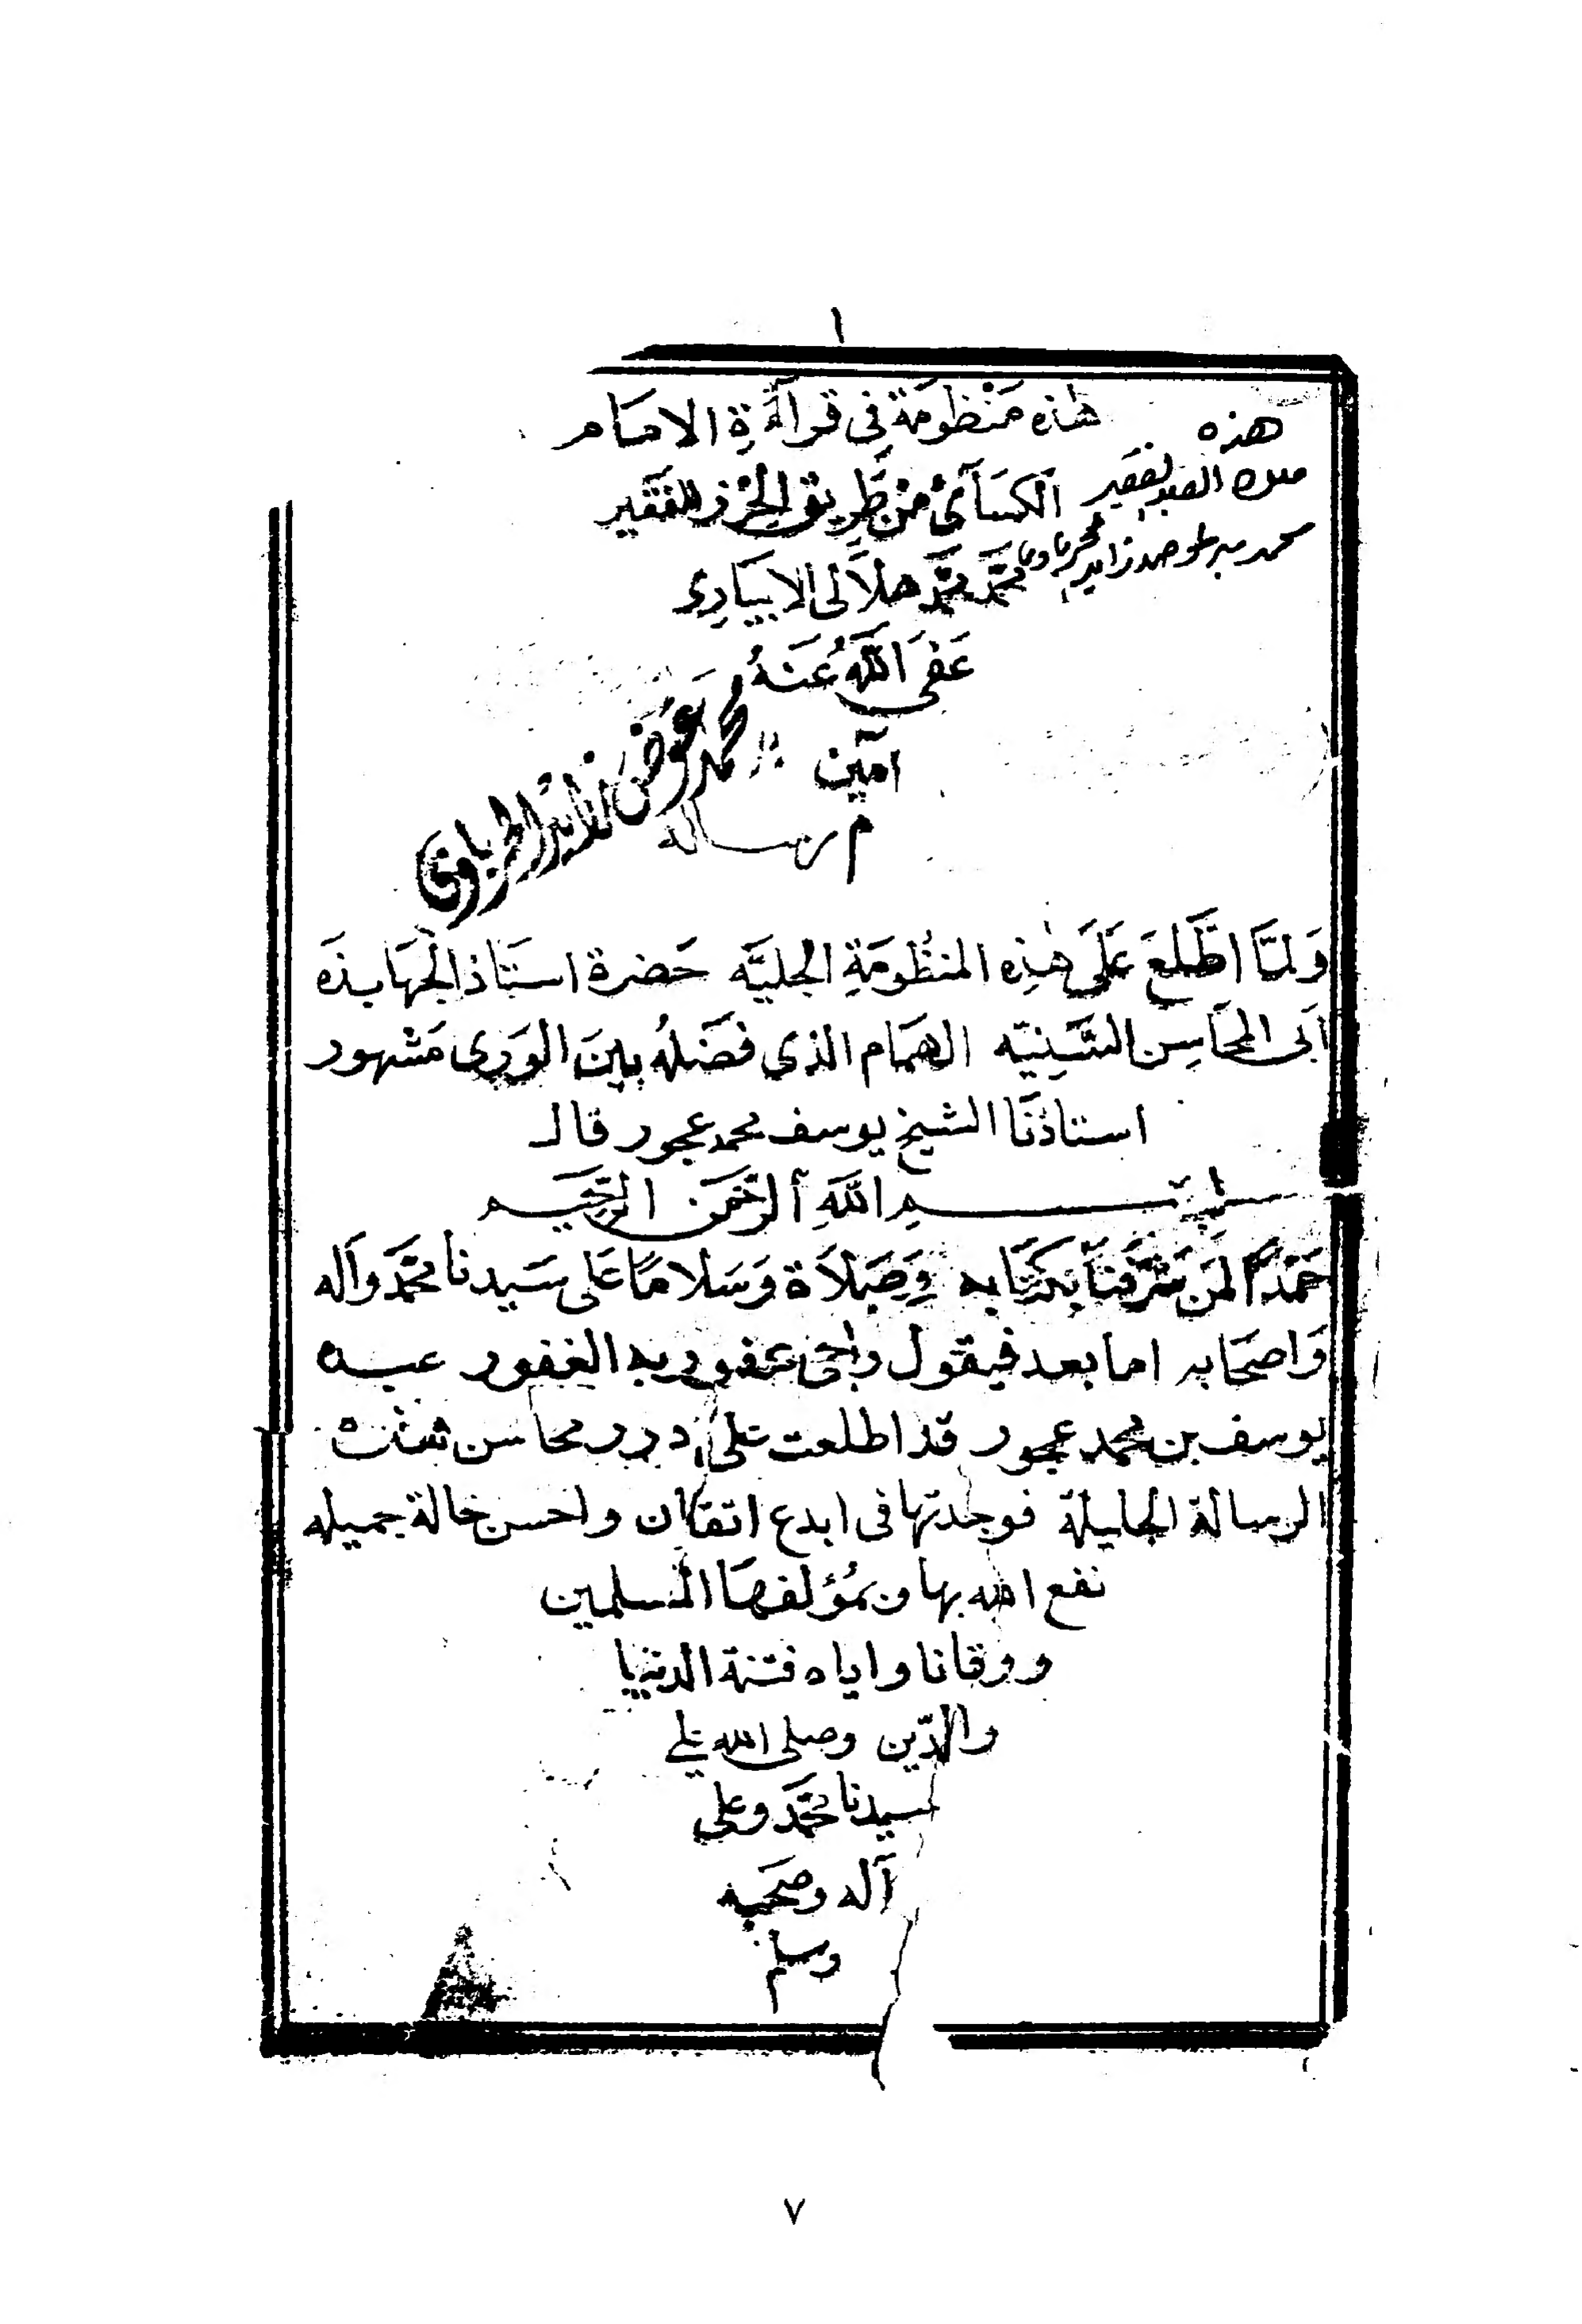 ١
هذه مَنْظومَة فى قرآءَة الامَام
الكسَائى مِنْ طَرِيق الحِرْز للفَقير
محمَّد محمَّد هلَالى الابيَارى
عَفى اللَّهُ عَنهُ
آمين
هذه
العبد الفقير
محمد عوض زايد الحرباوى
م رسالة
وَلمَّا اطَّلعَ عَلَى هٰذِه المنظُومَةِ الجليَّه حَضرة استَاذ الجهَابذَه
أبى المحَاسِن السَّنِيّه الهمَام الذى فضَلهُ بينَ الوَرى مَشهور
استاذنَا الشيخ يوسف محمد عجور قال
بسم اللَّهِ الرَّحْمَن الرَّحِيم
حَمْدًا لمَن شَرَّفنَا بِكتَابه وَصَلاَة وَسَلامًا عَلى سَيدنا محمَّد وآله
وَاصحَابه اما بعد فيقول راجى عفو ربه الغفور عبده
يوسف بن محمد عجور قد اطلعت على درر محاسن هذه
الرسالة الجليلة فوجدتها فى ابدع اتقان واحسن حالة جميله
نفع الله بها وبمُؤلفهَا المسلمين
ووقانا واياه فتنة الدنيا
والدّين وصلى الله على
سيدنا محمَّد وعلى
آله وصَحبه
وسلم
٧